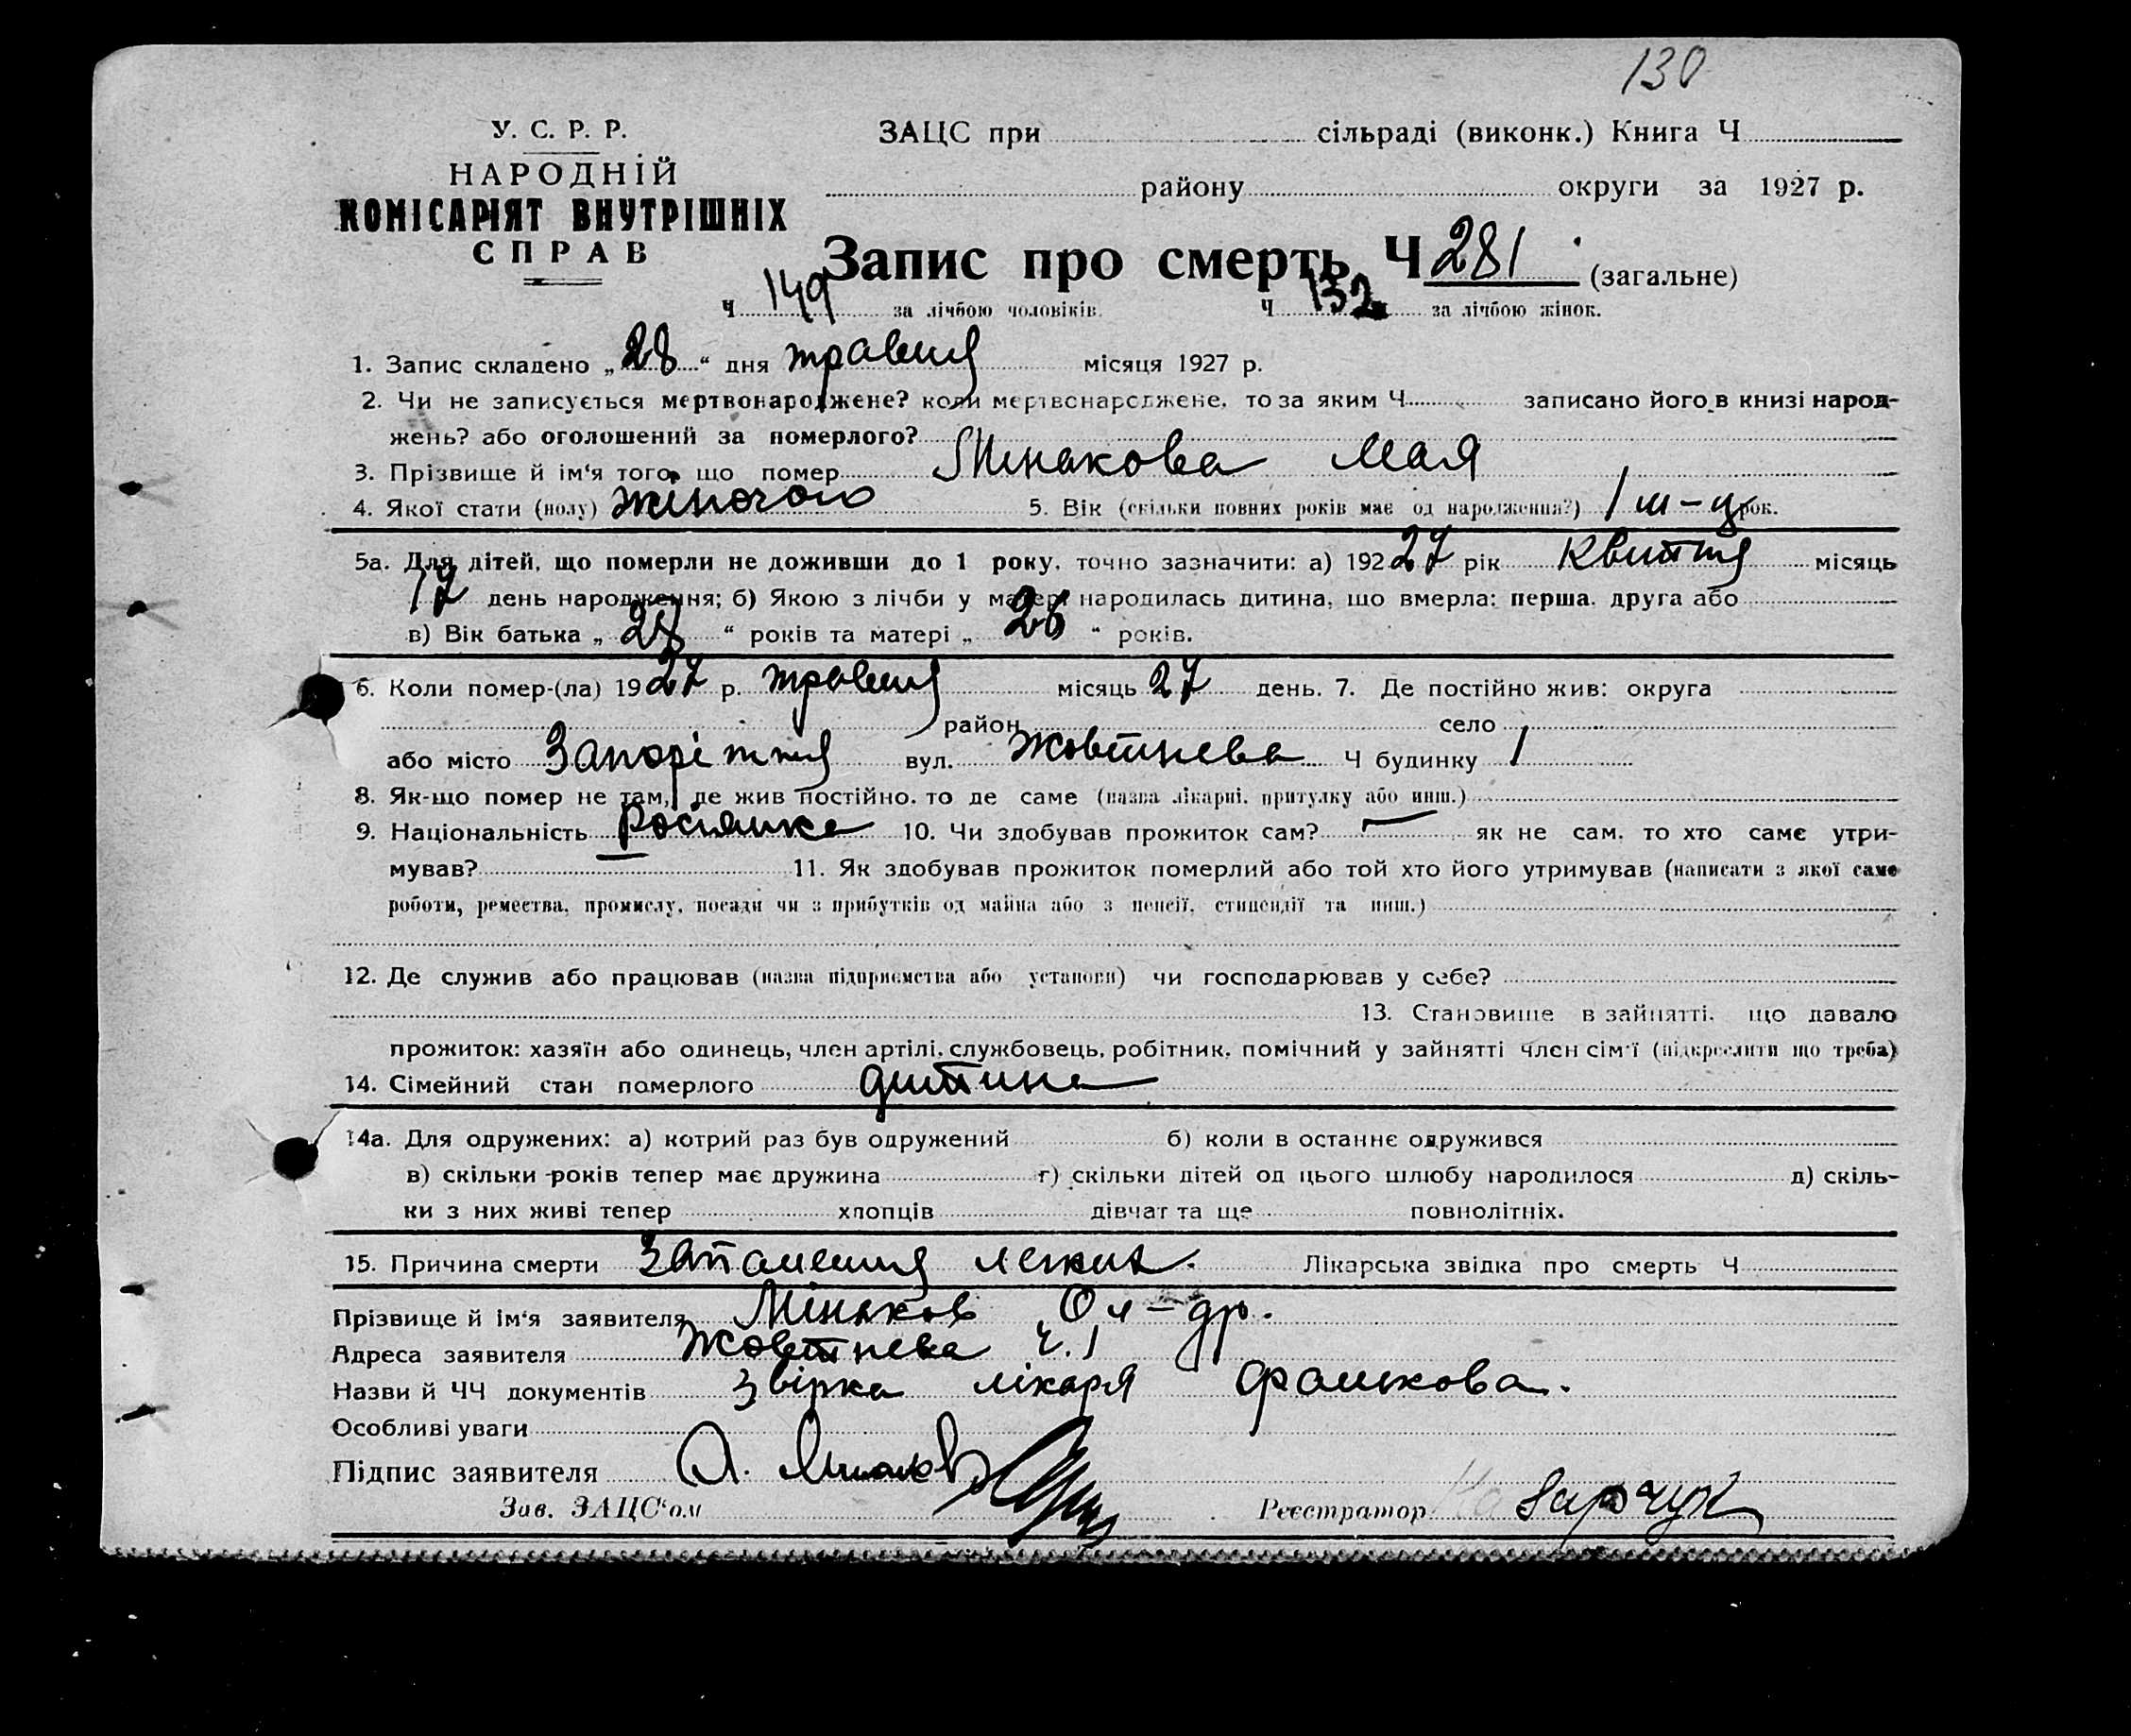 130
У. С. Р. Р.
НАРОДНІЙ
КОМІСАРІЯТ ВНУТРІШНІХ
СПРАВ
ЗАЦС при сільраді (виконк.) Книга Ч
району округи за 1927 р.
Запис про смерть Ч 281 (загальне)
Ч 149 за лічбою чоловіків. Ч 132 за лічбою жінок.
1. Запис складено „ 28 “ дня травня місяця 1927 р.
2. Чи не записується мертвонароджене? коли мертвонароджене, то за яким Ч записано його в книзі народ-
жень? або оголошений за померлого?
3. Прізвище й ім‘я того, що помер Минакова Мая
4. Якої стати (полу) жіночого 5. Вік (скільки повних років має од народження?) 1 м-ц рок.
5а. Для дітей, що померли не доживши до 1 року, точно зазначити: а) 192 27 рік Квітня місяць
17 день народження; б) Якою з лічби у матері народилась дитина, що вмерла: перша, друга або
в) Вік батька „ 28 “ років та матері „ 26 “ років.
6. Коли помер-(ла) 19 27 р. травня місяць 27 день. 7. Де постійно жив: округа
район село
або місто Запоріжжя вул. Жовтнева Ч будинку 1
8. Як-що помер не там, де жив постійно, то де саме (назва лікарні, притулку або инш.)
9. Національність Росіянка 10. Чи здобував прожиток сам? — як не сам, то хто саме утри-
мував? — 11. Як здобував прожиток померлий або той хто його утримував (написати з якої саме
роботи, ремества, промислу, посади чи з прибутків од майна або з пенсії, стипендії та инш.)
12. Де служив або працював (назва підприємства або установи) чи господарював у себе?
13. Становище в зайнятті, що давало
прожиток: хазяїн або одинець, член артілі, службовець, робітник, помічний у зайнятті член сім‘ї (підкреслити що треба)
14. Сімейний стан померлого дитина
14а. Для одружених: а) котрий раз був одружений б) коли в останнє одружився
в) скільки років тепер має дружина г) скільки дітей од цього шлюбу народилося д) скіль-
ки з них живі тепер хлопців дівчат та ще повнолітніх.
15. Причина смерти Запалення легких. Лікарська звідка про смерть Ч
Прізвище й ім‘я заявителя Мінаков Ол-др.
Адреса заявителя Жовтнева ч. 1
Назви й ЧЧ документів Звірка лікаря
Особливі уваги
Підпис заявителя А. Минаков
Зав. ЗАЦС‘ом Реєстратор